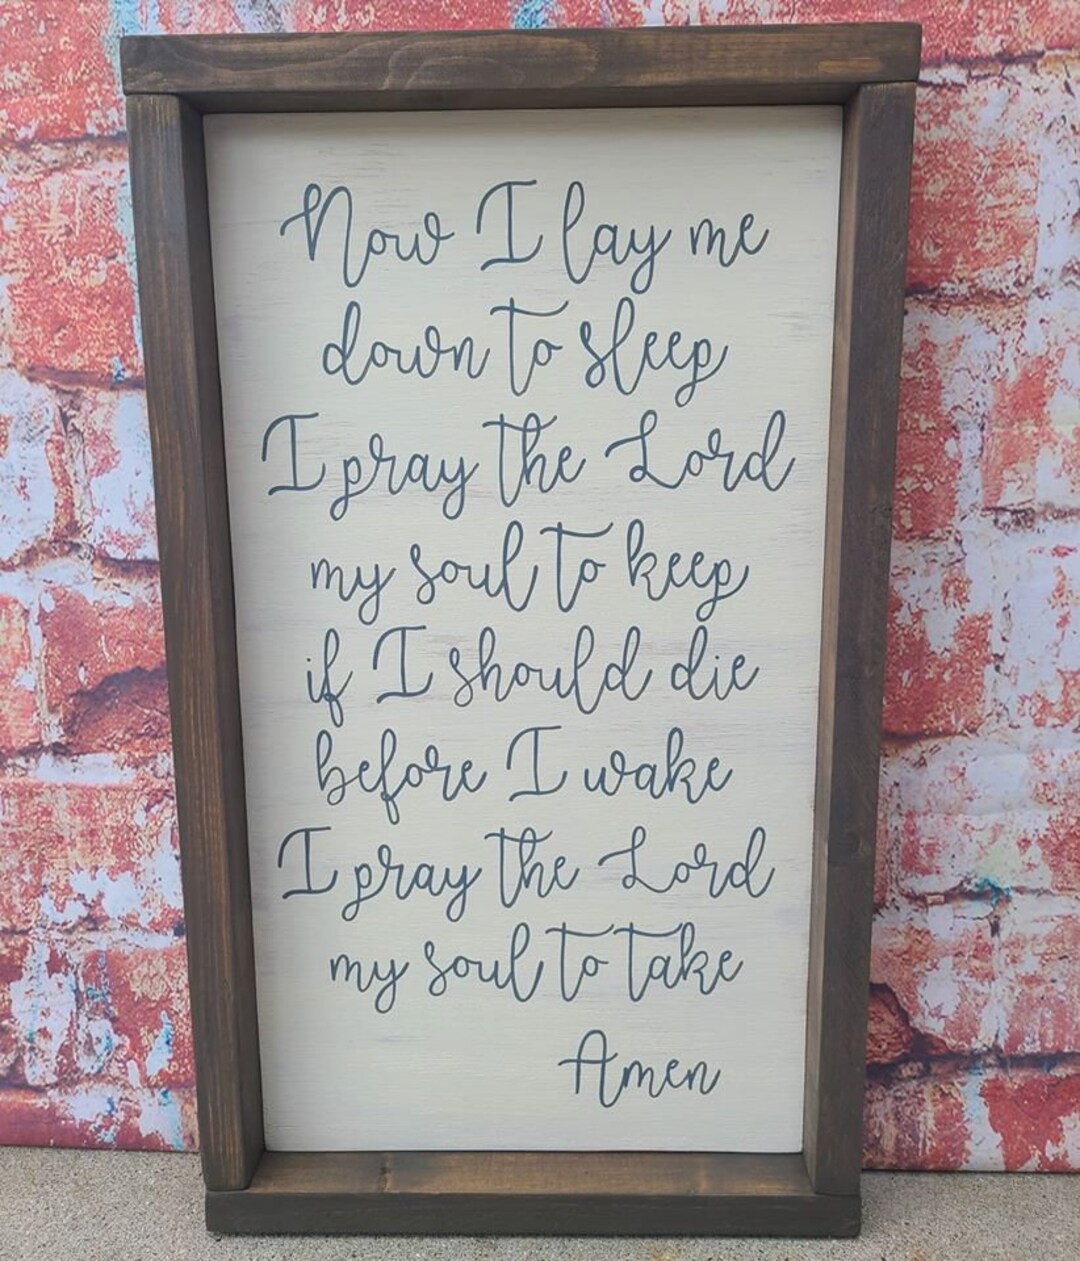 Now I lay me
down to sleep
I pray the Lord
my soul to keep
if I should die
before I wake
I pray the Lord
my soul to take
Amen